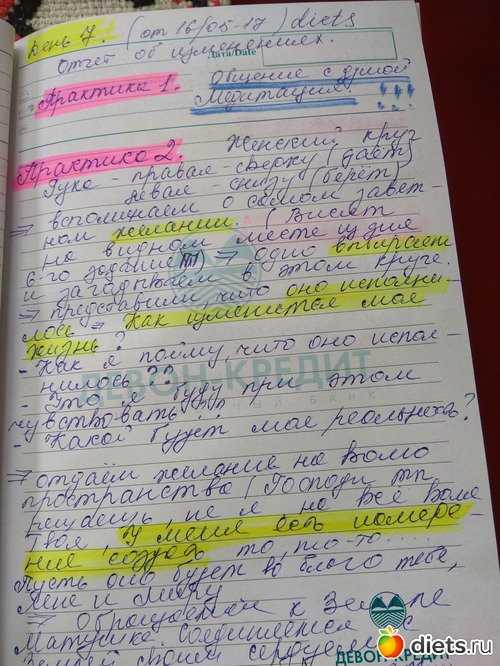 День 7. (от 16/05-17) diets
Отчет об изменениях.
Дата/Date
Практика 1. Общение с душой
Медитация. !!!
Практика 2. Женский круг
Руке - правая - сверху (дает)
левая - снизу (берет)
⇒ вспоминаем о самом завет-
ном желании (висят
на видном месте из дня
6-го задание) ⇒ одно выбираем
и загадываем в этом круге.
⇒ представили что оно исполни-
лось ⇒ Как изменится моя
жизнь?
- Как я пойму, что оно испол-
нилось??
ДЕВОН-КРЕДИТ
- Что я буду при этом
чувствовать?
БАНК
- Какой будет моя реальность?
⇒ отдаём желание на волю
пространства (Господи ты
решаешь, не я, на всё воля
Твоя, У меня есть намере-
ние создать то, то-то.....
Пусть оно будет во благо тебе,
мне и миру
⇒ Обращаемся к Земле
Матушке. Соединяемся с
ДЕВОН-КРЕДИТ
diets.ru